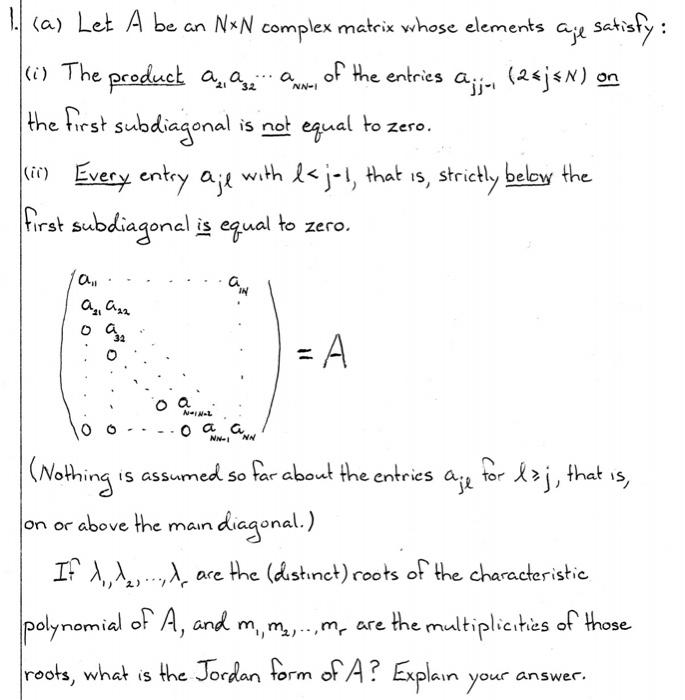 1. (a) Let A be an N×N complex matrix whose elements a_{jℓ} satisfy:
(i) The product a_{21} a_{32} ⋯ a_{NN-1} of the entries a_{jj-1} (2≤j≤N) on
the first subdiagonal is not equal to zero.
(ii) Every entry a_{jℓ} with ℓ<j-1, that is, strictly below the
first subdiagonal is equal to zero.
a_{11} · · · · · · · a_{1N}
a_{21} a_{22}
0 a_{32}
0
= A
0 a_{N-1N-2}
0 0 - · · - · 0 a_{NN-1} a_{NN}
(Nothing is assumed so far about the entries a_{jℓ} for ℓ≥j, that is,
on or above the main diagonal.)
If λ_1, λ_2, ..., λ_r are the (distinct) roots of the characteristic
polynomial of A, and m_1, m_2, ..., m_r are the multiplicities of those
roots, what is the Jordan form of A? Explain your answer.